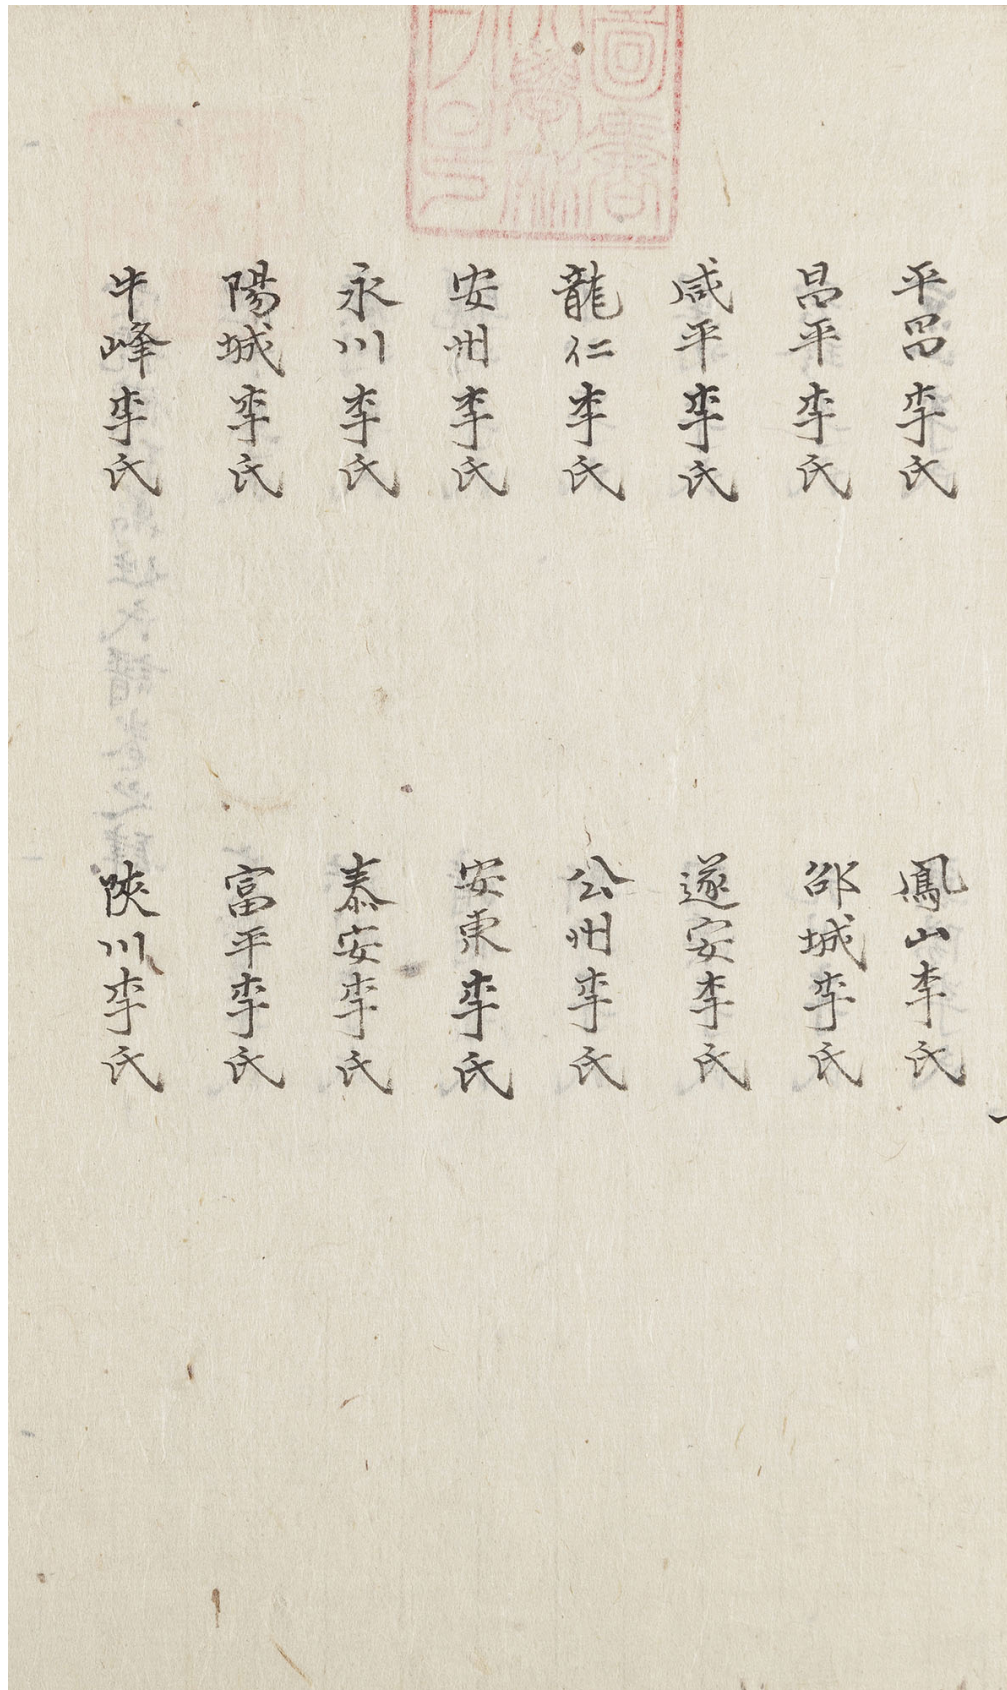 平昌李氏
鳳山李氏
昌平李氏
邵城李氏
咸平李氏
遂安李氏
龍仁李氏
公州李氏
安州李氏
安東李氏
永川李氏
泰安李氏
陽城李氏
富平李氏
牛峰李氏
陜川李氏